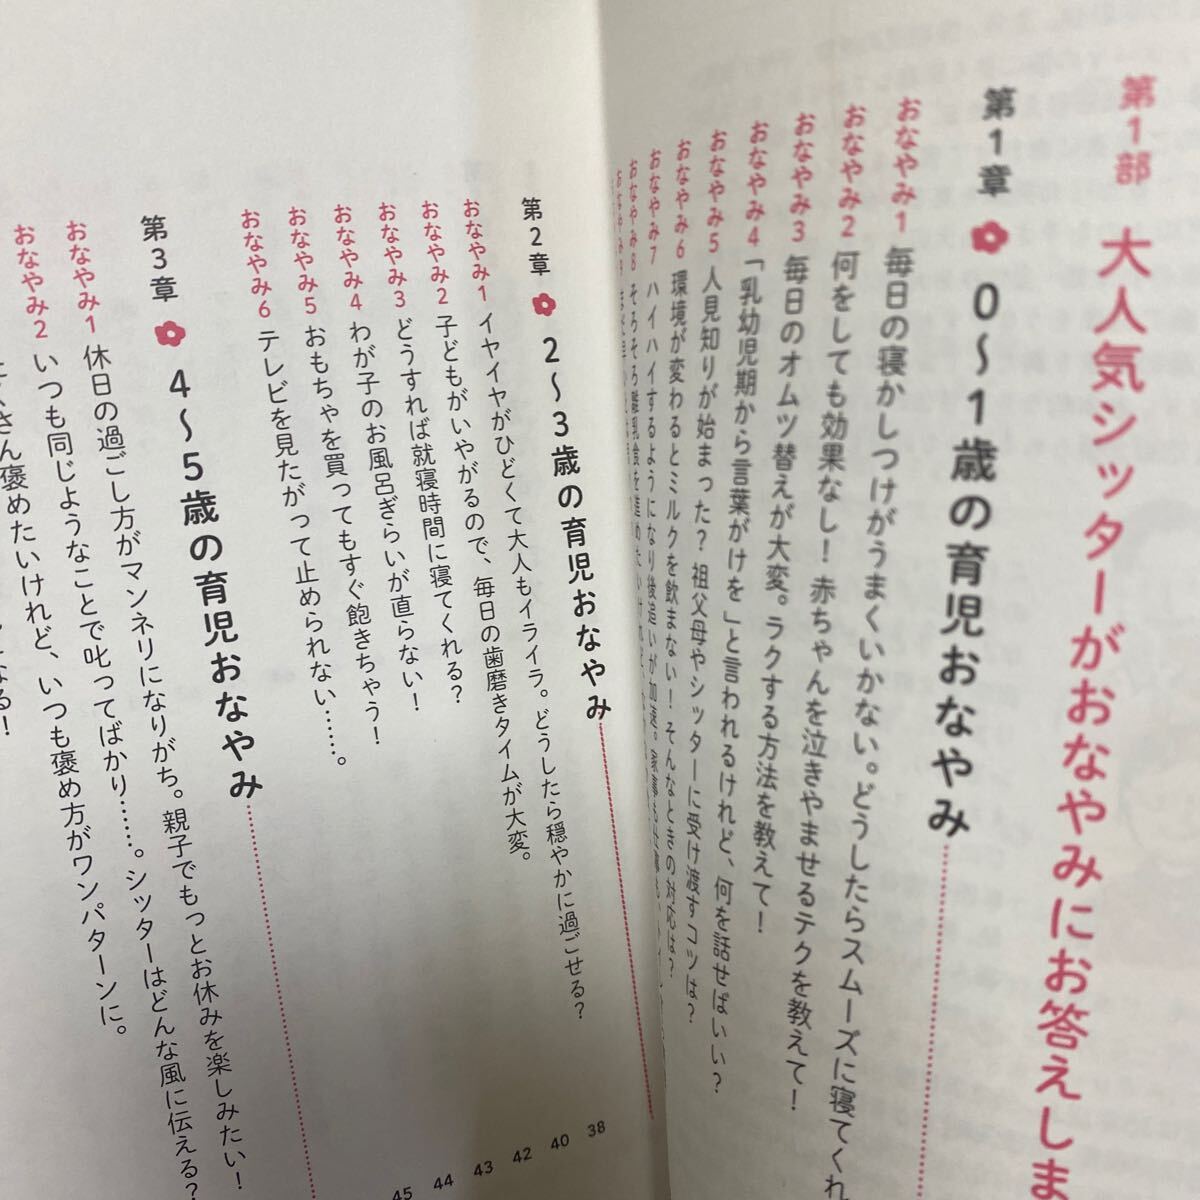 第1部 大人気シッターがおなやみにお答えしま
第1章 0〜1歳の育児おなやみ
おなやみ1 毎日の寝かしつけがうまくいかない。どうしたらスムーズに寝てくれ
おなやみ2 何をしても効果なし！赤ちゃんを泣きやませるテクを教えて！
おなやみ3 毎日のオムツ替えが大変。ラクする方法を教えて！
おなやみ4 「乳幼児期から言葉がけを」と言われるけれど、何を話せばいい？
おなやみ5 人見知りが始まった？祖父母やシッターに受け渡すコツは？
おなやみ6 環境が変わるとミルクを飲まない！そんなときの対応は？
おなやみ7 ハイハイするようになり後追いが加速。
おなやみ8 そろそろ離乳食を進め
おなやみ9 まだ
第2章 2〜3歳の育児おなやみ
おなやみ1 イヤイヤがひどくて大人もイライラ。どうしたら穏やかに過ごせる？
おなやみ2 子どもがいやがるので、毎日の歯磨きタイムが大変。
おなやみ3 どうすれば就寝時間に寝てくれる？
おなやみ4 わが子のお風呂ぎらいが直らない！
おなやみ5 おもちゃを買ってもすぐ飽きちゃう！
おなやみ6 テレビを見たがって止められない……。
38
40
42
43
44
45
第3章 4〜5歳の育児おなやみ
おなやみ1 休日の過ごし方がマンネリになりがち。親子でもっとお休みを楽しみたい！
おなやみ2 いつも同じようなことで叱ってばかり……。シッターはどんな風に伝える？
さん褒めたいけれど、いつも褒め方がワンパターンに。
なる！